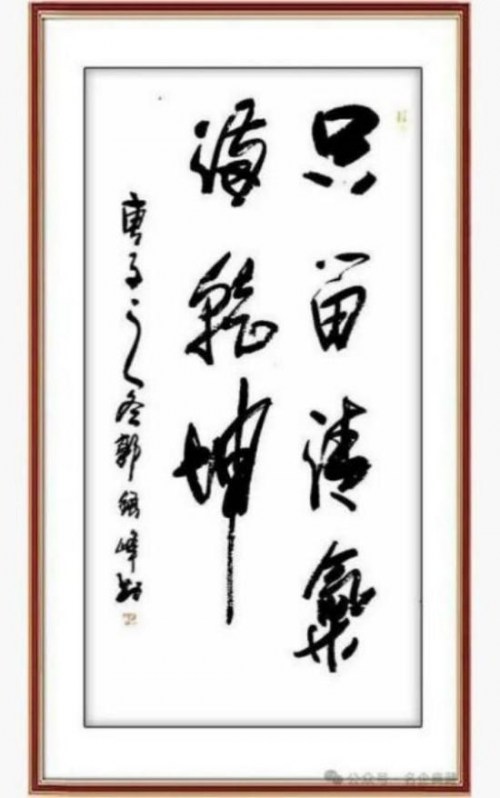 只留清氣
滿乾坤
庚子之冬郭峰
公众号·名企典藏